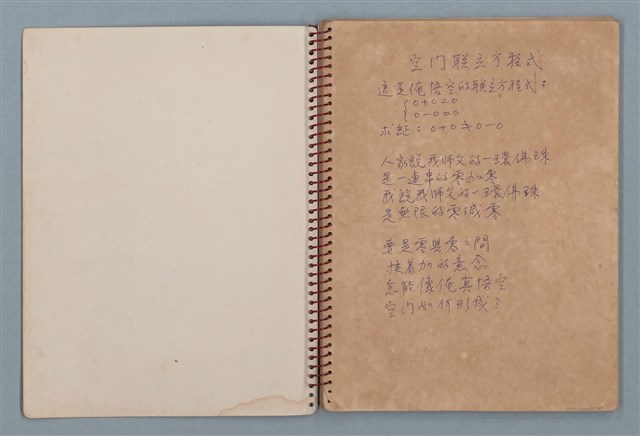 空门联立方程式
這是俺悟空的联立方程式：
{0+0=0
{0-0=0
求証：0+0≠0-0
人家說我师父的一環佛珠
是一連串的零加零
我說我师父的一環佛珠
是無限的零減零
要是零與零之間
接着加的意念
怎能像俺真悟空
空门如何形成？